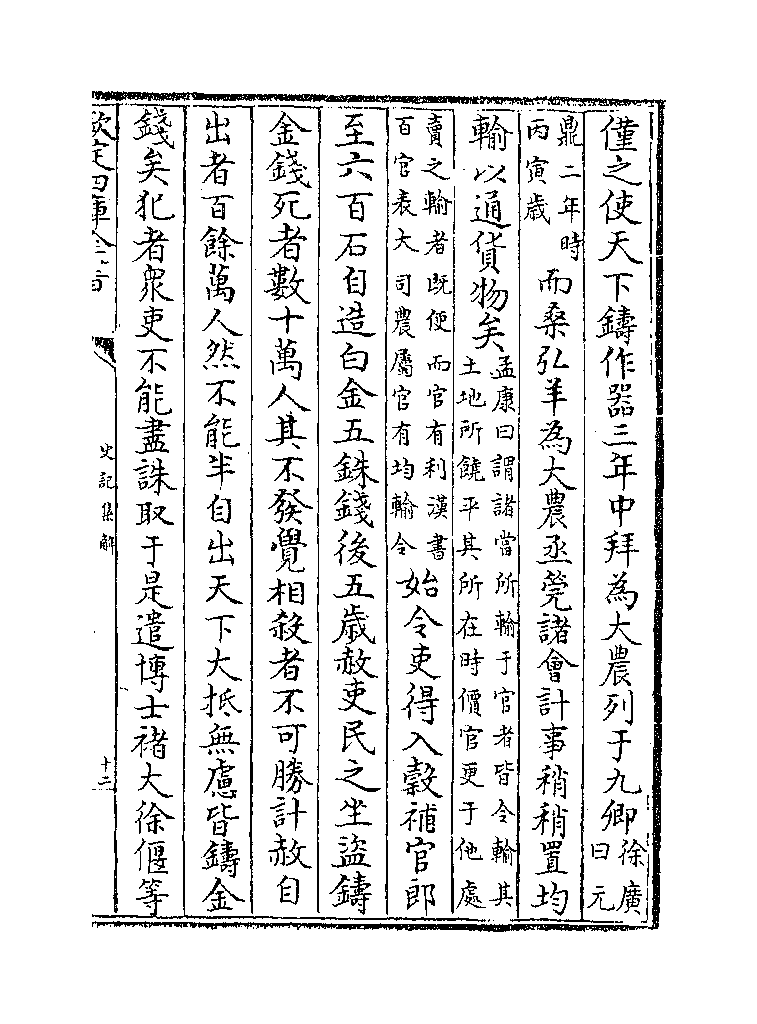 僅之使天下鑄作器三年中拜為大農列于九卿徐廣曰元
鼎二年時丙寅歲而桑弘羊為大農丞筦諸會計事稍稍置均
輸以通貨物矣孟康曰謂諸當所輸于官者皆令輸其土地所饒平其所在時價官更于他處
賣之輸者既便而官有利漢書百官表大司農屬官有均輸令始令吏得入穀補官郎
至六百石自造白金五銖錢後五歲赦吏民之坐盜鑄
金錢死者數十萬人其不發覺相殺者不可勝計赦自
出者百餘萬人然不能半自出天下大抵無慮皆鑄金
錢矣犯者衆吏不能盡誅取于是遣博士褚大徐偃等
欽定四庫全書
史記集解
十二